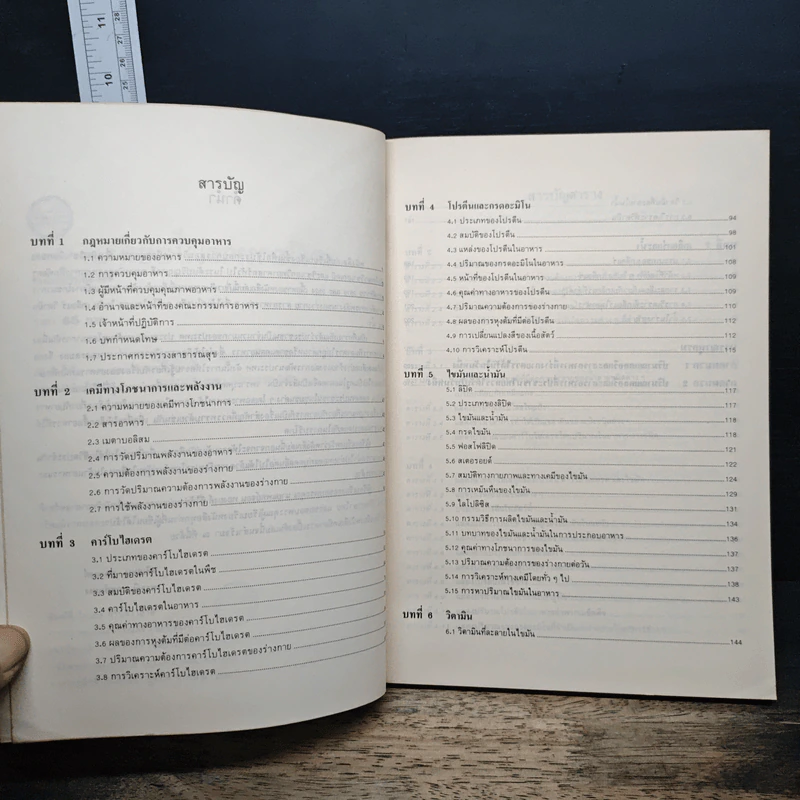 สารบัญ
บทที่ 1 กฎหมายเกี่ยวกับการควบคุมอาหาร
1.1 ความหมายของอาหาร
1.2 การควบคุมอาหาร
1.3 ผู้มีหน้าที่ควบคุมคุณภาพอาหาร
1.4 อำนาจและหน้าที่ของคณะกรรมการอาหาร
1.5 เจ้าหน้าที่ปฏิบัติการ
1.6 บทกำหนดโทษ
1.7 ประกาศกระทรวงสาธารณสุข
บทที่ 2 เคมีทางโภชนาการและพลังงาน
2.1 ความหมายของเคมีทางโภชนาการ
2.2 สารอาหาร
2.3 เมตาบอลิสม
2.4 การวัดปริมาณพลังงานของอาหาร
2.5 ความต้องการพลังงานของร่างกาย
2.6 การวัดปริมาณความต้องการพลังงานของร่างกาย
2.7 การใช้พลังงานของร่างกาย
บทที่ 3 คาร์โบไฮเดรต
3.1 ประเภทของคาร์โบไฮเดรต
3.2 ที่มาของคาร์โบไฮเดรตในพืช
3.3 สมบัติของคาร์โบไฮเดรต
3.4 คาร์โบไฮเดรตในอาหาร
3.5 คุณค่าทางอาหารของคาร์โบไฮเดรต
3.6 ผลของการหุงต้มที่มีต่อคาร์โบไฮเดรต
3.7 ปริมาณความต้องการคาร์โบไฮเดรตของร่างกาย
3.8 การวิเคราะห์คาร์โบไฮเดรต
บทที่ 4 โปรตีนและกรดอะมิโน
4.1 ประเภทของโปรตีน 94
4.2 สมบัติของโปรตีน 98
4.3 แหล่งของโปรตีนในอาหาร 101
4.4 ปริมาณของกรดอะมิโนในอาหาร 108
4.5 หน้าที่ของโปรตีนในอาหาร 108
4.6 คุณค่าทางอาหารของโปรตีน 109
4.7 ปริมาณความต้องการของร่างกาย 110
4.8 ผลของการหุงต้มที่มีต่อโปรตีน 112
4.9 การเปลี่ยนแปลงสีของเนื้อสัตว์ 112
4.10 การวิเคราะห์โปรตีน 115
บทที่ 5 ไขมันและน้ำมัน
5.1 ลิปิด 117
5.2 ประเภทของลิปิด 117
5.3 ไขมันและน้ำมัน 118
5.4 กรดไขมัน 118
5.5 ฟอสโฟลิปิด 121
5.6 สเตอรอยด์ 122
5.7 สมบัติทางกายภาพและทางเคมีของไขมัน 124
5.8 การเหม็นหืนของไขมัน 127
5.9 ไลโปลิซิส 131
5.10 กรรมวิธีการผลิตไขมันและน้ำมัน 131
5.11 บทบาทของไขมันและน้ำมันในการประกอบอาหาร 134
5.12 คุณค่าทางโภชนาการของไขมัน 136
5.13 ปริมาณความต้องการของร่างกายต่อวัน 137
5.14 การวิเคราะห์ทางเคมีโดยทั่ว ๆ ไป 138
5.15 การหาปริมาณไขมันในอาหาร 143
บทที่ 6 วิตามิน
6.1 วิตามินที่ละลายในไขมัน 144
11
10
28
27
26
25